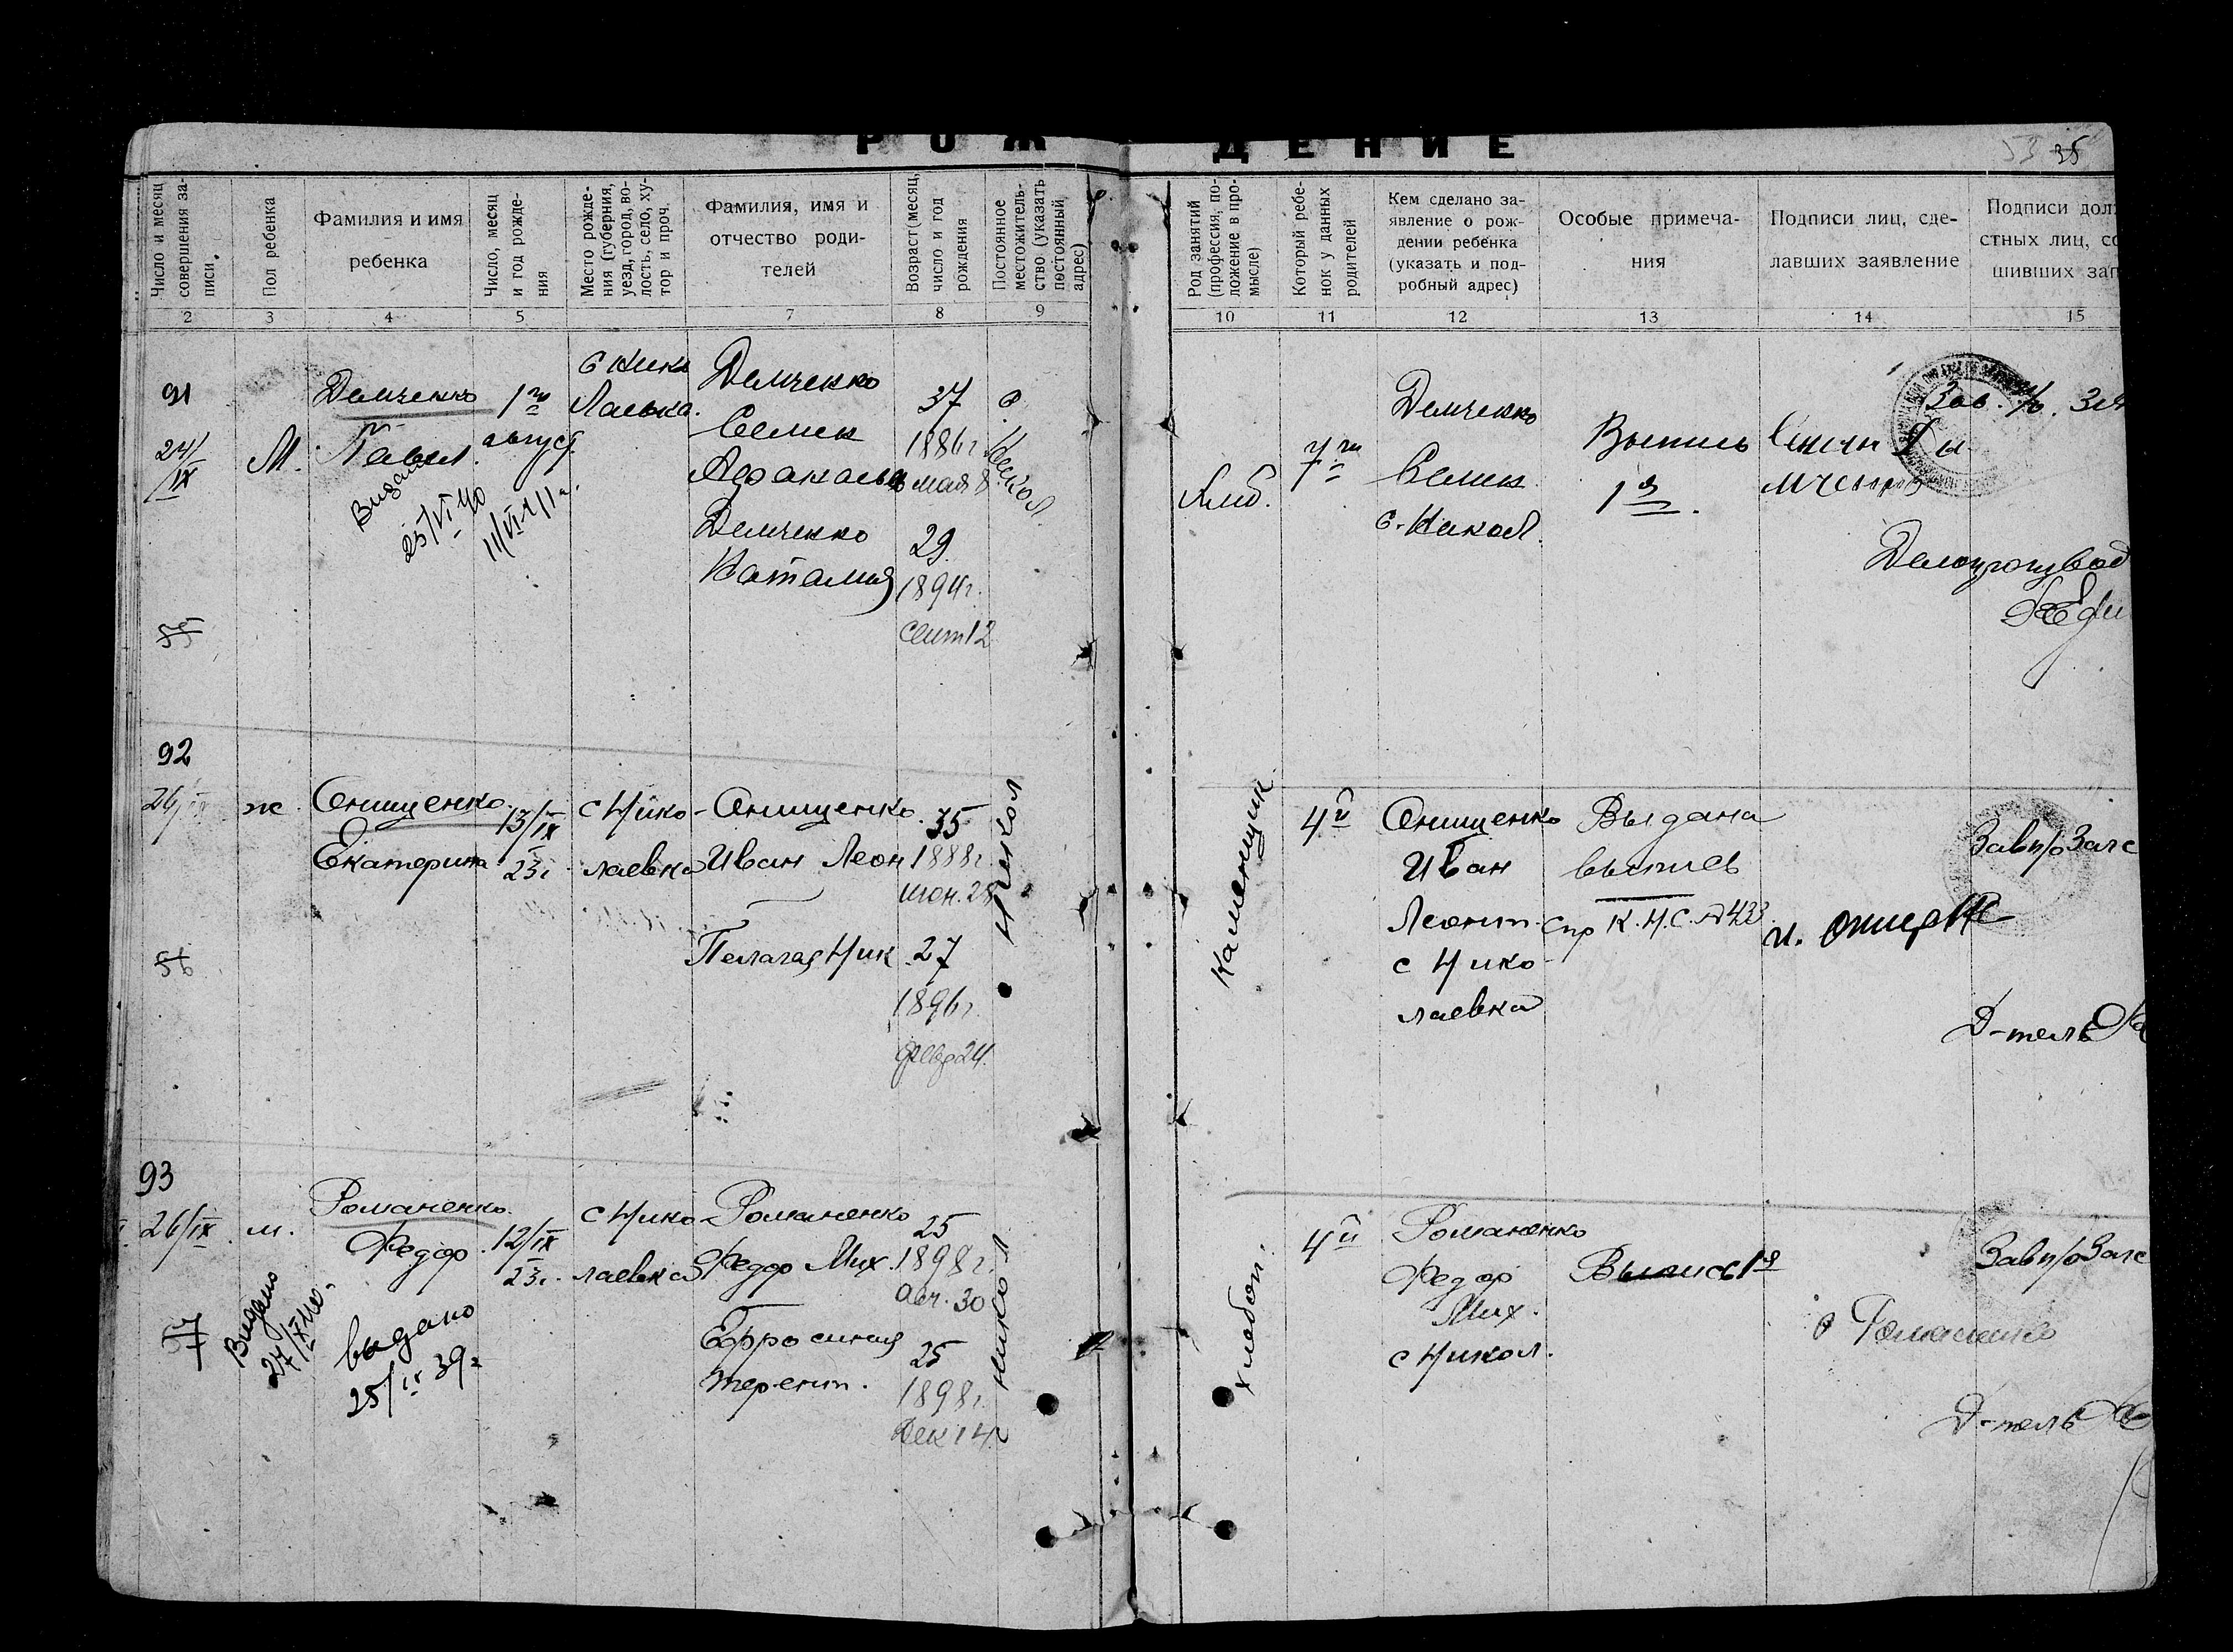 РОЖДЕНИЕ
35
Число и месяц совершения записи.
Пол ребенка
Фамилия и имя
ребенка
Число, месяц
и год рожде-
ния
Место рожде-
ния (губерния,
уезд, город, во-
лость, село, ху-
тор и проч.
Фамилия, имя и
отчество роди-
телей
Возраст (месяц,
число и год
рождения
Постоянное
местожитель-
ство (указать
постоянный
адрес)
Род занятий
(профессия, по-
ложение в про-
мысле)
Который ребе-
нок у данных
родителей
Кем сделано за-
явление о рож-
дении ребенка
(указать и под-
робный адрес)
Особые примеча-
ния
Подписи лиц, сде-
лавших заявление
Подписи дол
стных лиц, со
шивших зап
2 3 4 5 7 8 9 10 11 12 13 14 15
91
24/IX
М.
Демченко
Павел
1го
август
с Нико
лаевка.
Демченко
Семен
37
1886г
мая 8
Демченко
Наталия
29
1894г.
сент 12
с. Никол.
Хлеб.
7й
Демченко
Семен
с. Никол.
Выпись
1я
Зав. п/о. Заг
55
92
26/IX
ж.
Онищенко
Екатерина
13/IX
23г.
с Нико-
лаевка
Онищенко
Иван Леон
35
1888г.
июн. 28
Пелагея Ник
27
1896г.
февр 24.
Никол
Каменщик
4й
Онищенко
Иван
Леонт.
с Нико-
лаевка
Выдана
выпись
Спр К.Н.С. № 433
Завп/оЗагс
Д-тель
56
93
26/IX
м.
Романенко
Федор
12/IX
23г.
с Нико-
лаевка
Романенко
Федор Мих.
25
1898г.
Авг. 30
Ефросиния
Терент.
25
1898г.
Дек 14
Никол
хлебоп.
4й
Романенко
Федор
Мих.
с Никол.
Выпись 1я
Завп/оЗагс
Романенко
Д-тель
57
выдано
25/IX 39г